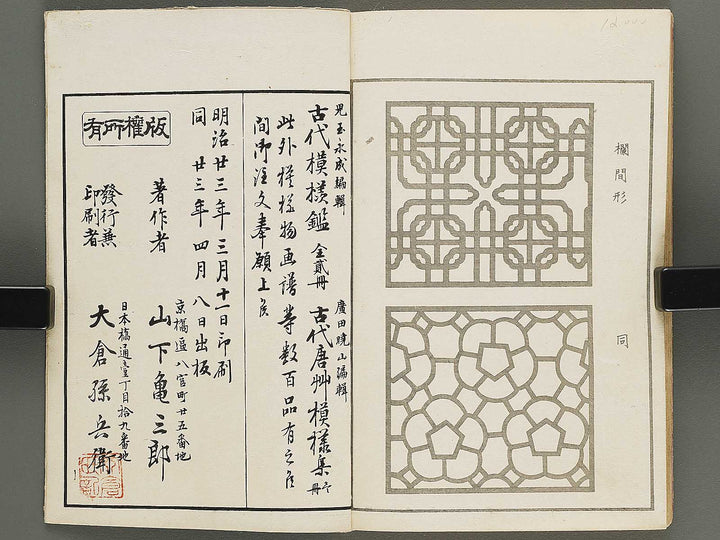 欄間形
同
児玉永成編輯
古代模様鑑 全貳冊
廣田曉山編輯
古代唐艸模様集 冊
此外模様物画譜等数百品有之候
間御注文奉願上候
明治廿三年三月十一日印刷
同 廿三年四月八日出板
著作者
京橋區八官町廿五番地
山下亀三郎
發行兼
印刷者
日本橋通壹丁目拾九番地
大倉孫兵衛
版權所有